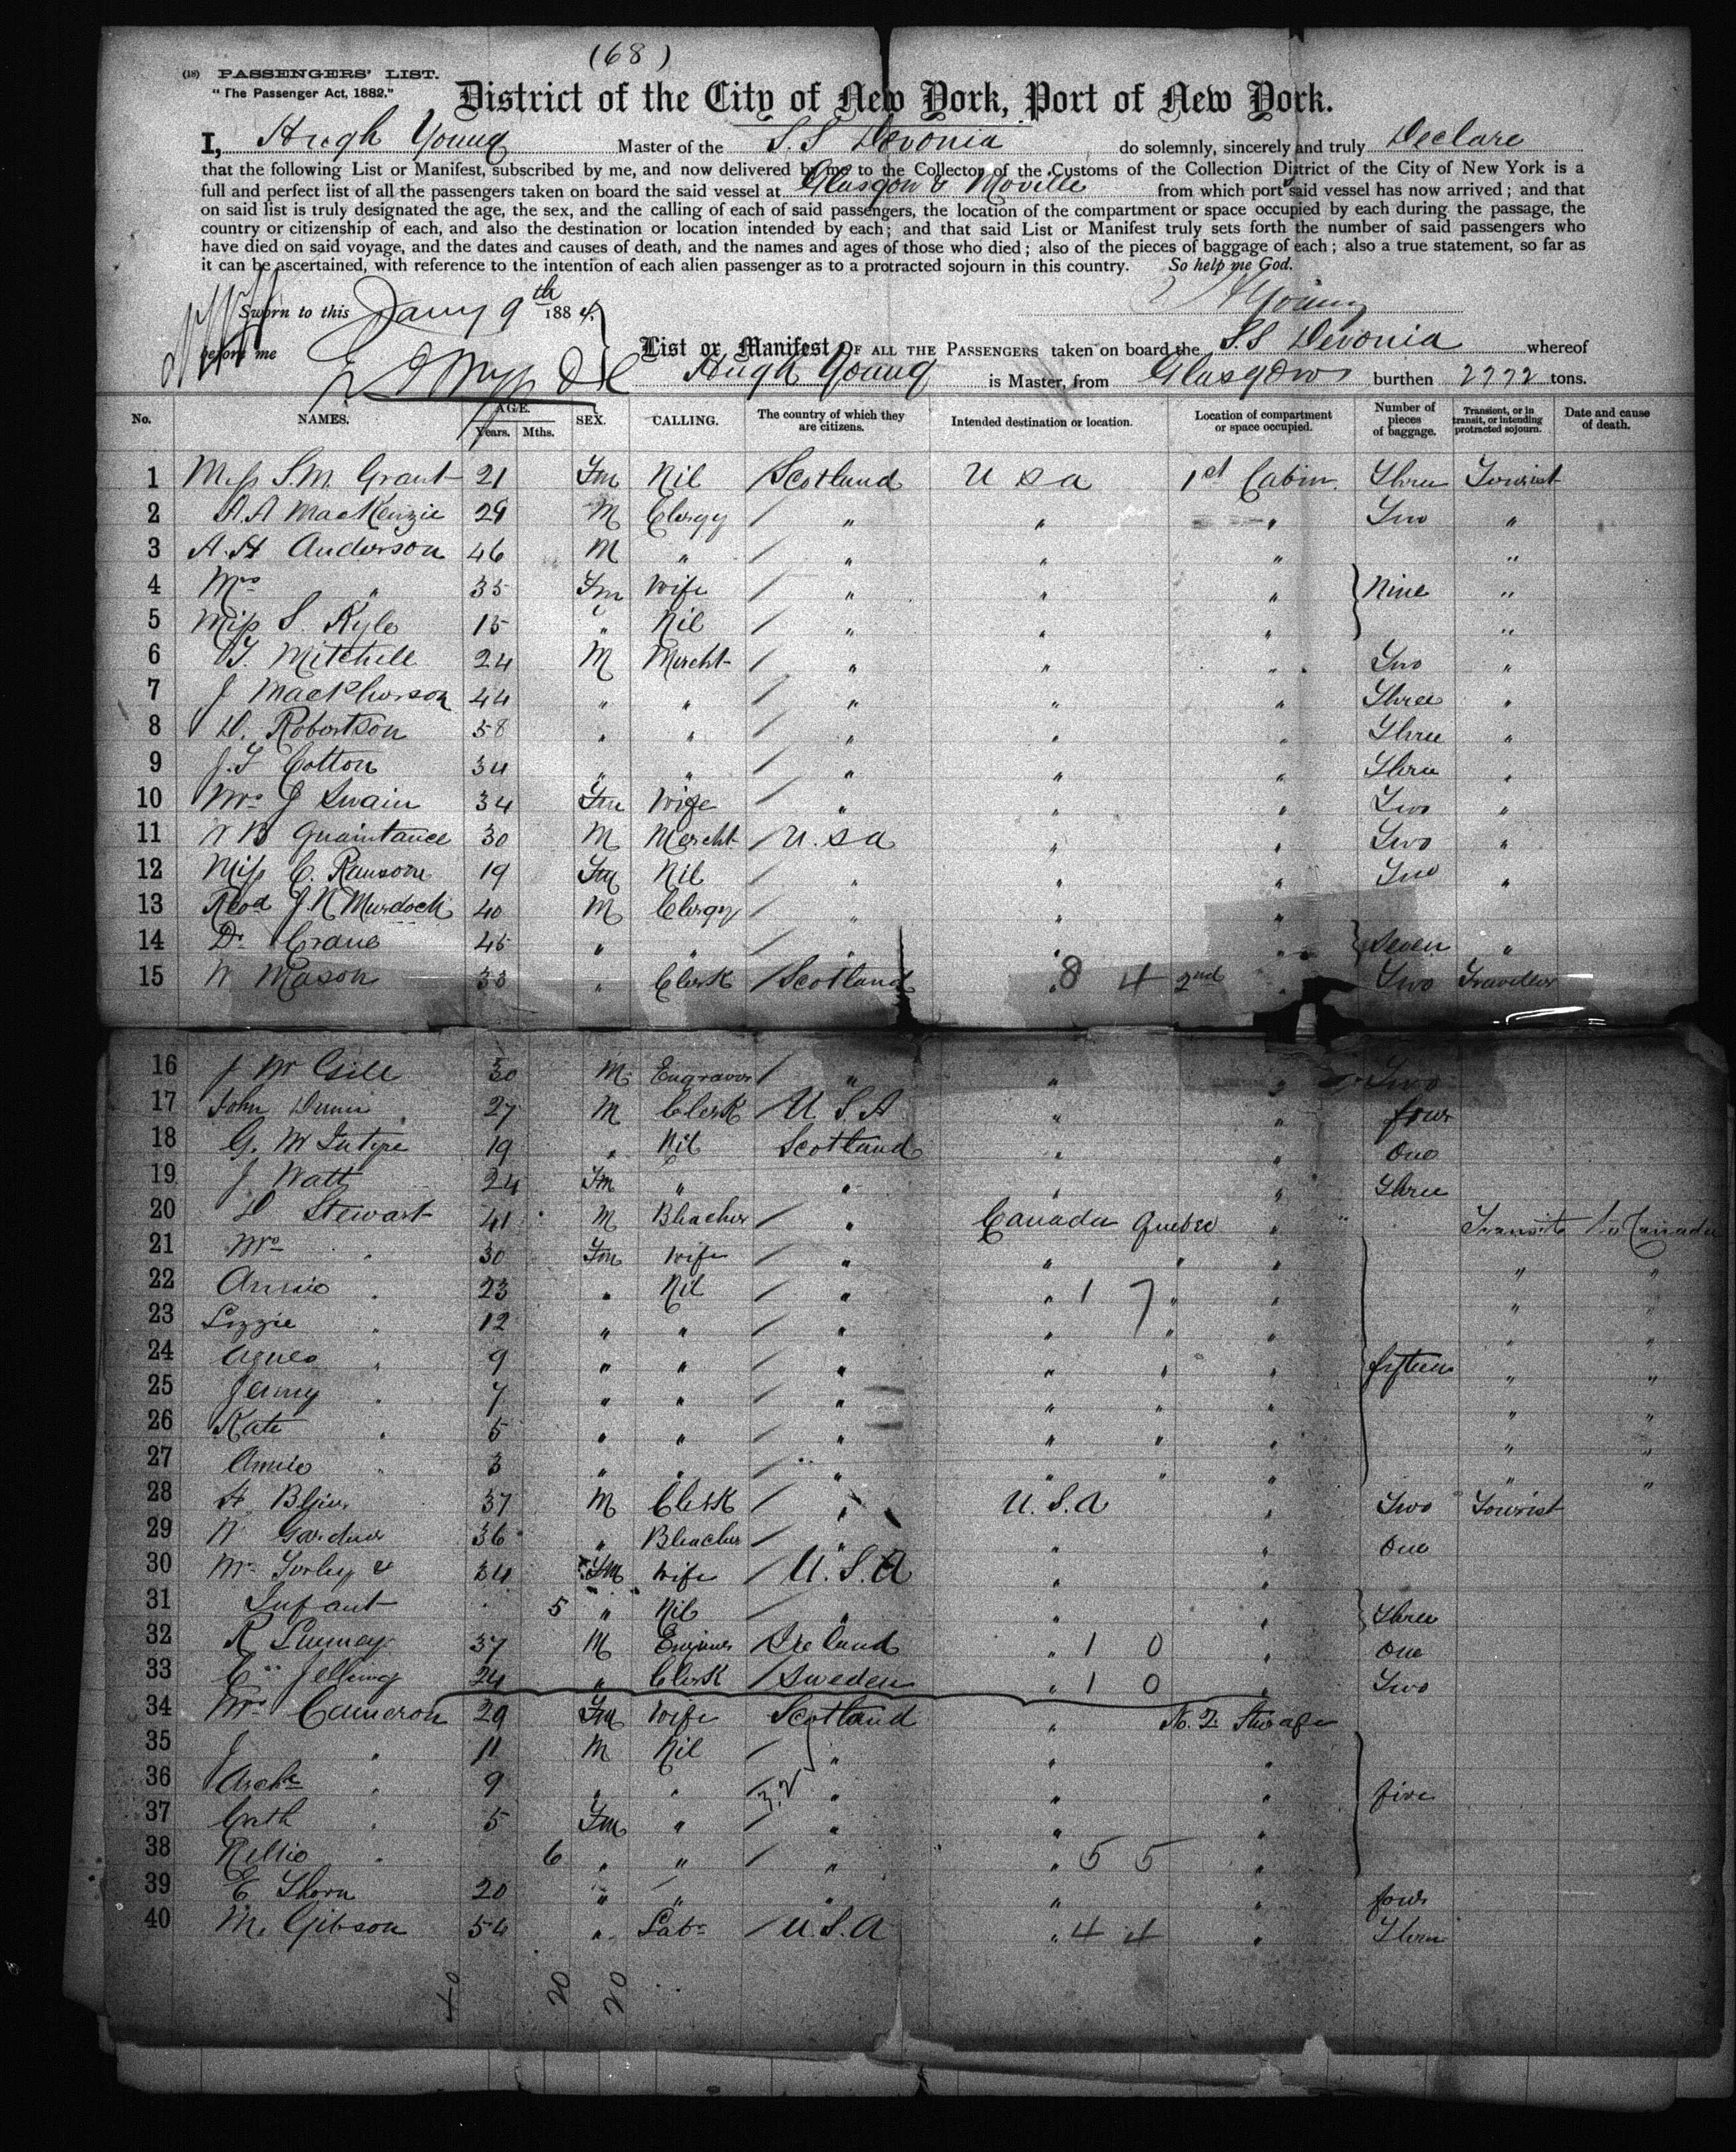 (68)
(18) PASSENGERS' LIST.
"The Passenger Act, 1882."
District of the City of New York, Port of New York.
I, Hugh Young Master of the S.S Devonia do solemnly, sincerely and truly Declare
that the following List or Manifest, subscribed by me, and now delivered by me to the Collector of the Customs of the Collection District of the City of New York is a
full and perfect list of all the passengers taken on board the said vessel at Glasgow & Moville from which port said vessel has now arrived; and that
on said list is truly designated the age, the sex, and the calling of each of said passengers, the location of the compartment or space occupied by each during the passage, the
country or citizenship of each, and also the destination or location intended by each; and that said List or Manifest truly sets forth the number of said passengers who
have died on said voyage, and the dates and causes of death, and the names and ages of those who died; also of the pieces of baggage of each; also a true statement, so far as
it can be ascertained, with reference to the intention of each alien passenger as to a protracted sojourn in this country. So help me God.
H Young
Sworn to this Jany 9th 1884
before me
List or Manifest OF ALL THE PASSENGERS taken on board the S.S Devonia whereof
Hugh Young is Master, from Glasgow burthen 2772 tons.
No. NAMES. AGE. Years. Mths. SEX. CALLING. The country of which they are citizens. Intended destination or location. Location of compartment or space occupied. Number of pieces of baggage. Transient, or in transit, or intending protracted sojourn. Date and cause of death.
1 Miss S.M. Grant 21 Fm Nil Scotland U S A 1st Cabin Three Tourist
2 A.A MacKenzie 29 M Clergy / " " " Two "
3 A.H Anderson 46 M " / " " " "
4 Mrs " 35 Fm Wife / " " " Nine "
5 Miss S. Kyle 15 " Nil / " " " "
6 Mitchell 24 M Mercht / " " " Two "
7 J MacPherson 44 " " / " " " Three "
8 D. Robertson 58 " " / " " " Three "
9 J.T Cotton 34 " " / " " " Three "
10 Mrs J Swain 34 Fm Wife / " " " Two "
11 W B Quaintance 30 M Mercht / U.S.A " " Two "
12 Miss C. Ransom 19 Fm Nil / " " " Two "
13 Revd J.N Murdock 40 M Clergy / " " "
14 Dr Crane 45 " " / " " " Seven "
15 W Mason 33 " Clerk / Scotland " 8 4 2nd " Two Traveller
16 J McGill 30 M Engraver / " " " Two
17 John Dunn 27 M Clerk / U S A " " four
18 G. McIntyre 19 " Nil Scotland " " One
19 J Watt 24 Fm " " " " Three
20 D Stewart 41 M Bleacher / " Canada Quebec " Transit to Canada
21 Mrs " 30 Fm Wife / " " " " " "
22 Annie " 23 " Nil / " " 1 7 " " " "
23 Lizzie " 12 " " / " " " " " "
24 Agnes " 9 " " / " " " " fifteen " "
25 Jenny " 7 " " / " " " "
26 Kate " 5 " " / " " " " " "
27 " 3 " " / " " " " " "
28 H 37 M Clerk / " U.S.A " Two Tourist
29 W Gardner 36 " Bleacher / " " " One
30 Mrs Torley & 34 Fm Wife / U.S.A " "
31 Infant 5 " Nil / " " " Three
32 R 37 M Engineer / Ireland " 1 0 " One
33 C Jelling 24 " Clerk / Sweden " 1 0 " Two
34 Mrs Cameron 29 Fm Wife Scotland " No. 2 Steerage
35 J " 11 M Nil / " " "
36 Archie " 9 " " 32 " " " five
37 " 5 Fm " / " " "
38 Nellie " 6 " " / " " 5 5 "
39 E Thorn 20 " " " " " four
40 M. Gibson 54 " Labr / U.S.A " 4 4 " Three
40 20 20